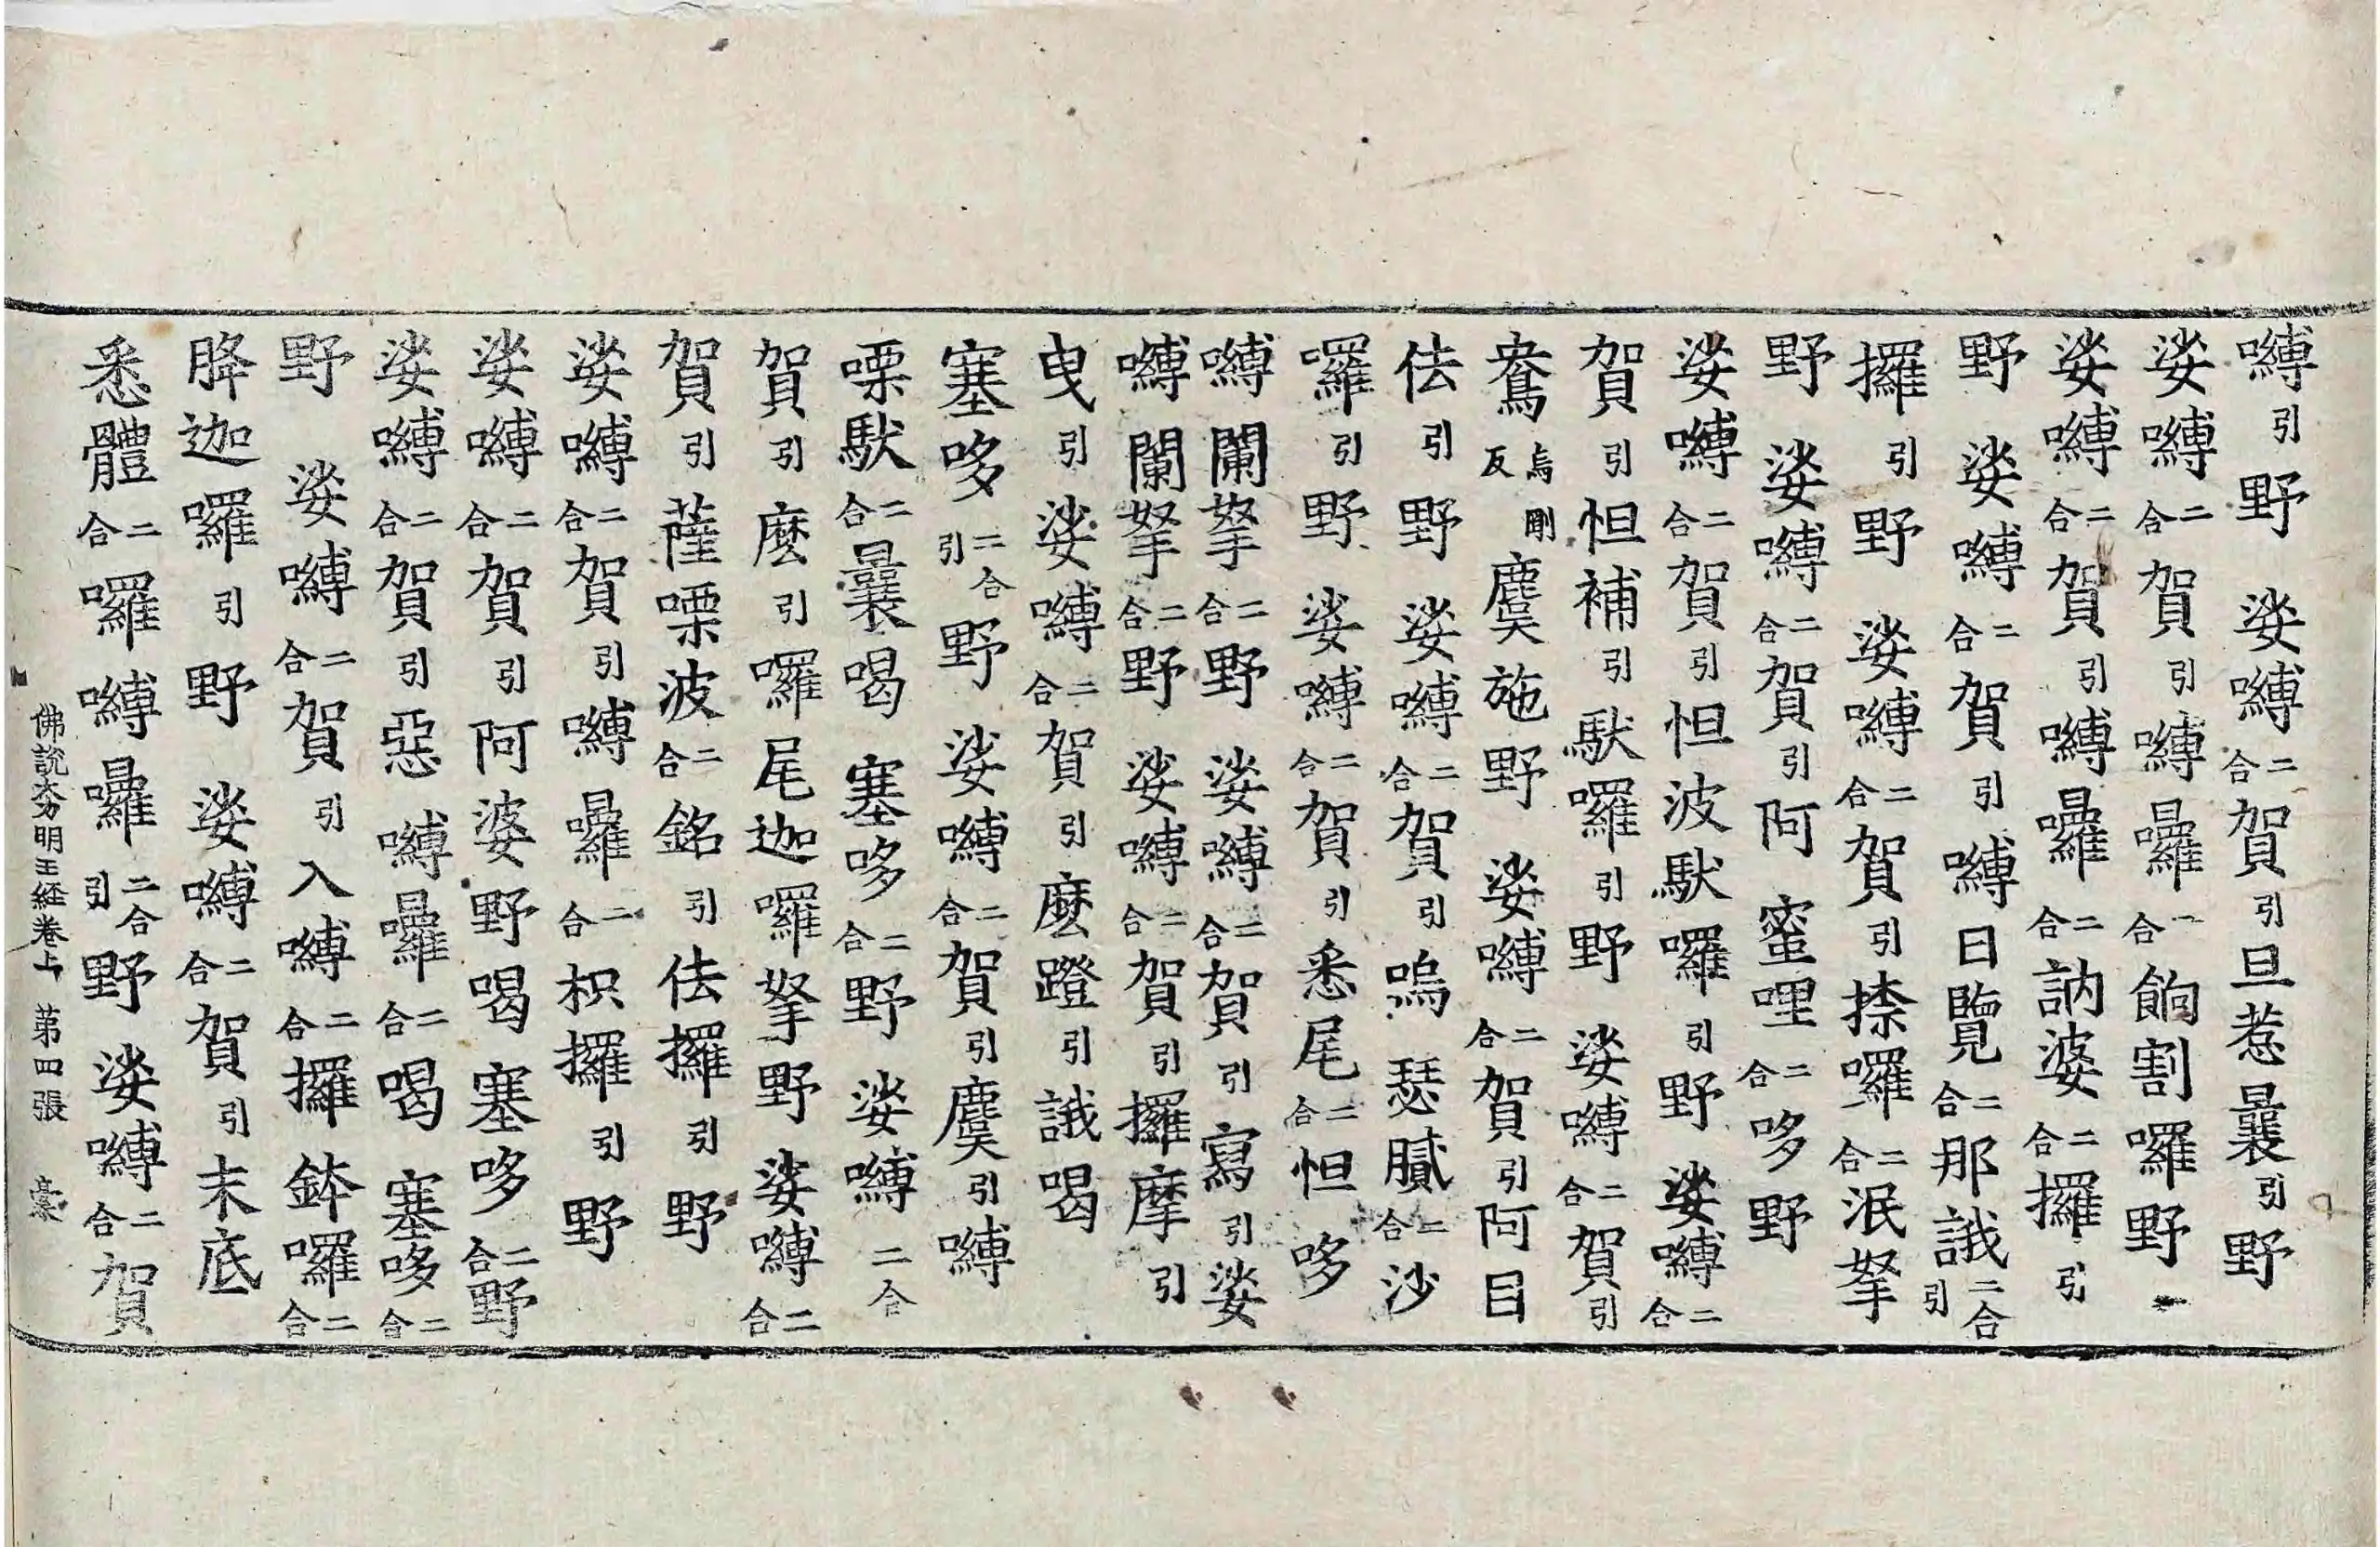 嚩引野 娑嚩二合賀引旦惹曩引野
娑嚩二合賀引嚩曪二合餉割囉野
娑嚩二合賀引嚩曪二合訥婆二合攞引
野 娑嚩二合賀引嚩日覽二合那誐二合引
攞引野 娑嚩二合賀引捺囉二合泯拏
野 娑嚩二合賀引阿蜜哩二合哆野
娑嚩二合賀引怛波馱囉引野娑嚩二合
賀引怛補引馱囉引野 娑嚩二合賀引
鴦烏剛反麌施野 娑嚩二合賀引阿目
佉引野娑嚩二合賀引嗚瑟膩二合沙
囉引野 娑嚩二合賀引悉尾二合怛哆
嚩闌拏二合野 娑嚩二合賀引寫引娑
嚩闌拏二合野 娑嚩二合賀引攞摩引
曳引娑嚩二合賀引麼蹬引誐喝
塞哆二合引野 娑嚩二合賀引麌引嚩
㗚馱二合曩喝 塞哆二合野 娑嚩二合
賀引麼引囉尾迦囉拏野娑嚩二合
賀引薩㗚波二合銘引佉攞引野
娑嚩二合賀引嚩曪二合枳攞引野
娑嚩二合賀引阿婆野喝塞哆二合野
娑嚩二合賀引惡嚩曪二合喝塞哆二合
野 娑嚩二合賀引入嚩二合攞鉢囉二合
胮迦囉引野 娑嚩二合賀引末底
悉體二合囉嚩曪二合引野娑嚩二合賀
佛說大方明王経卷上 第四張